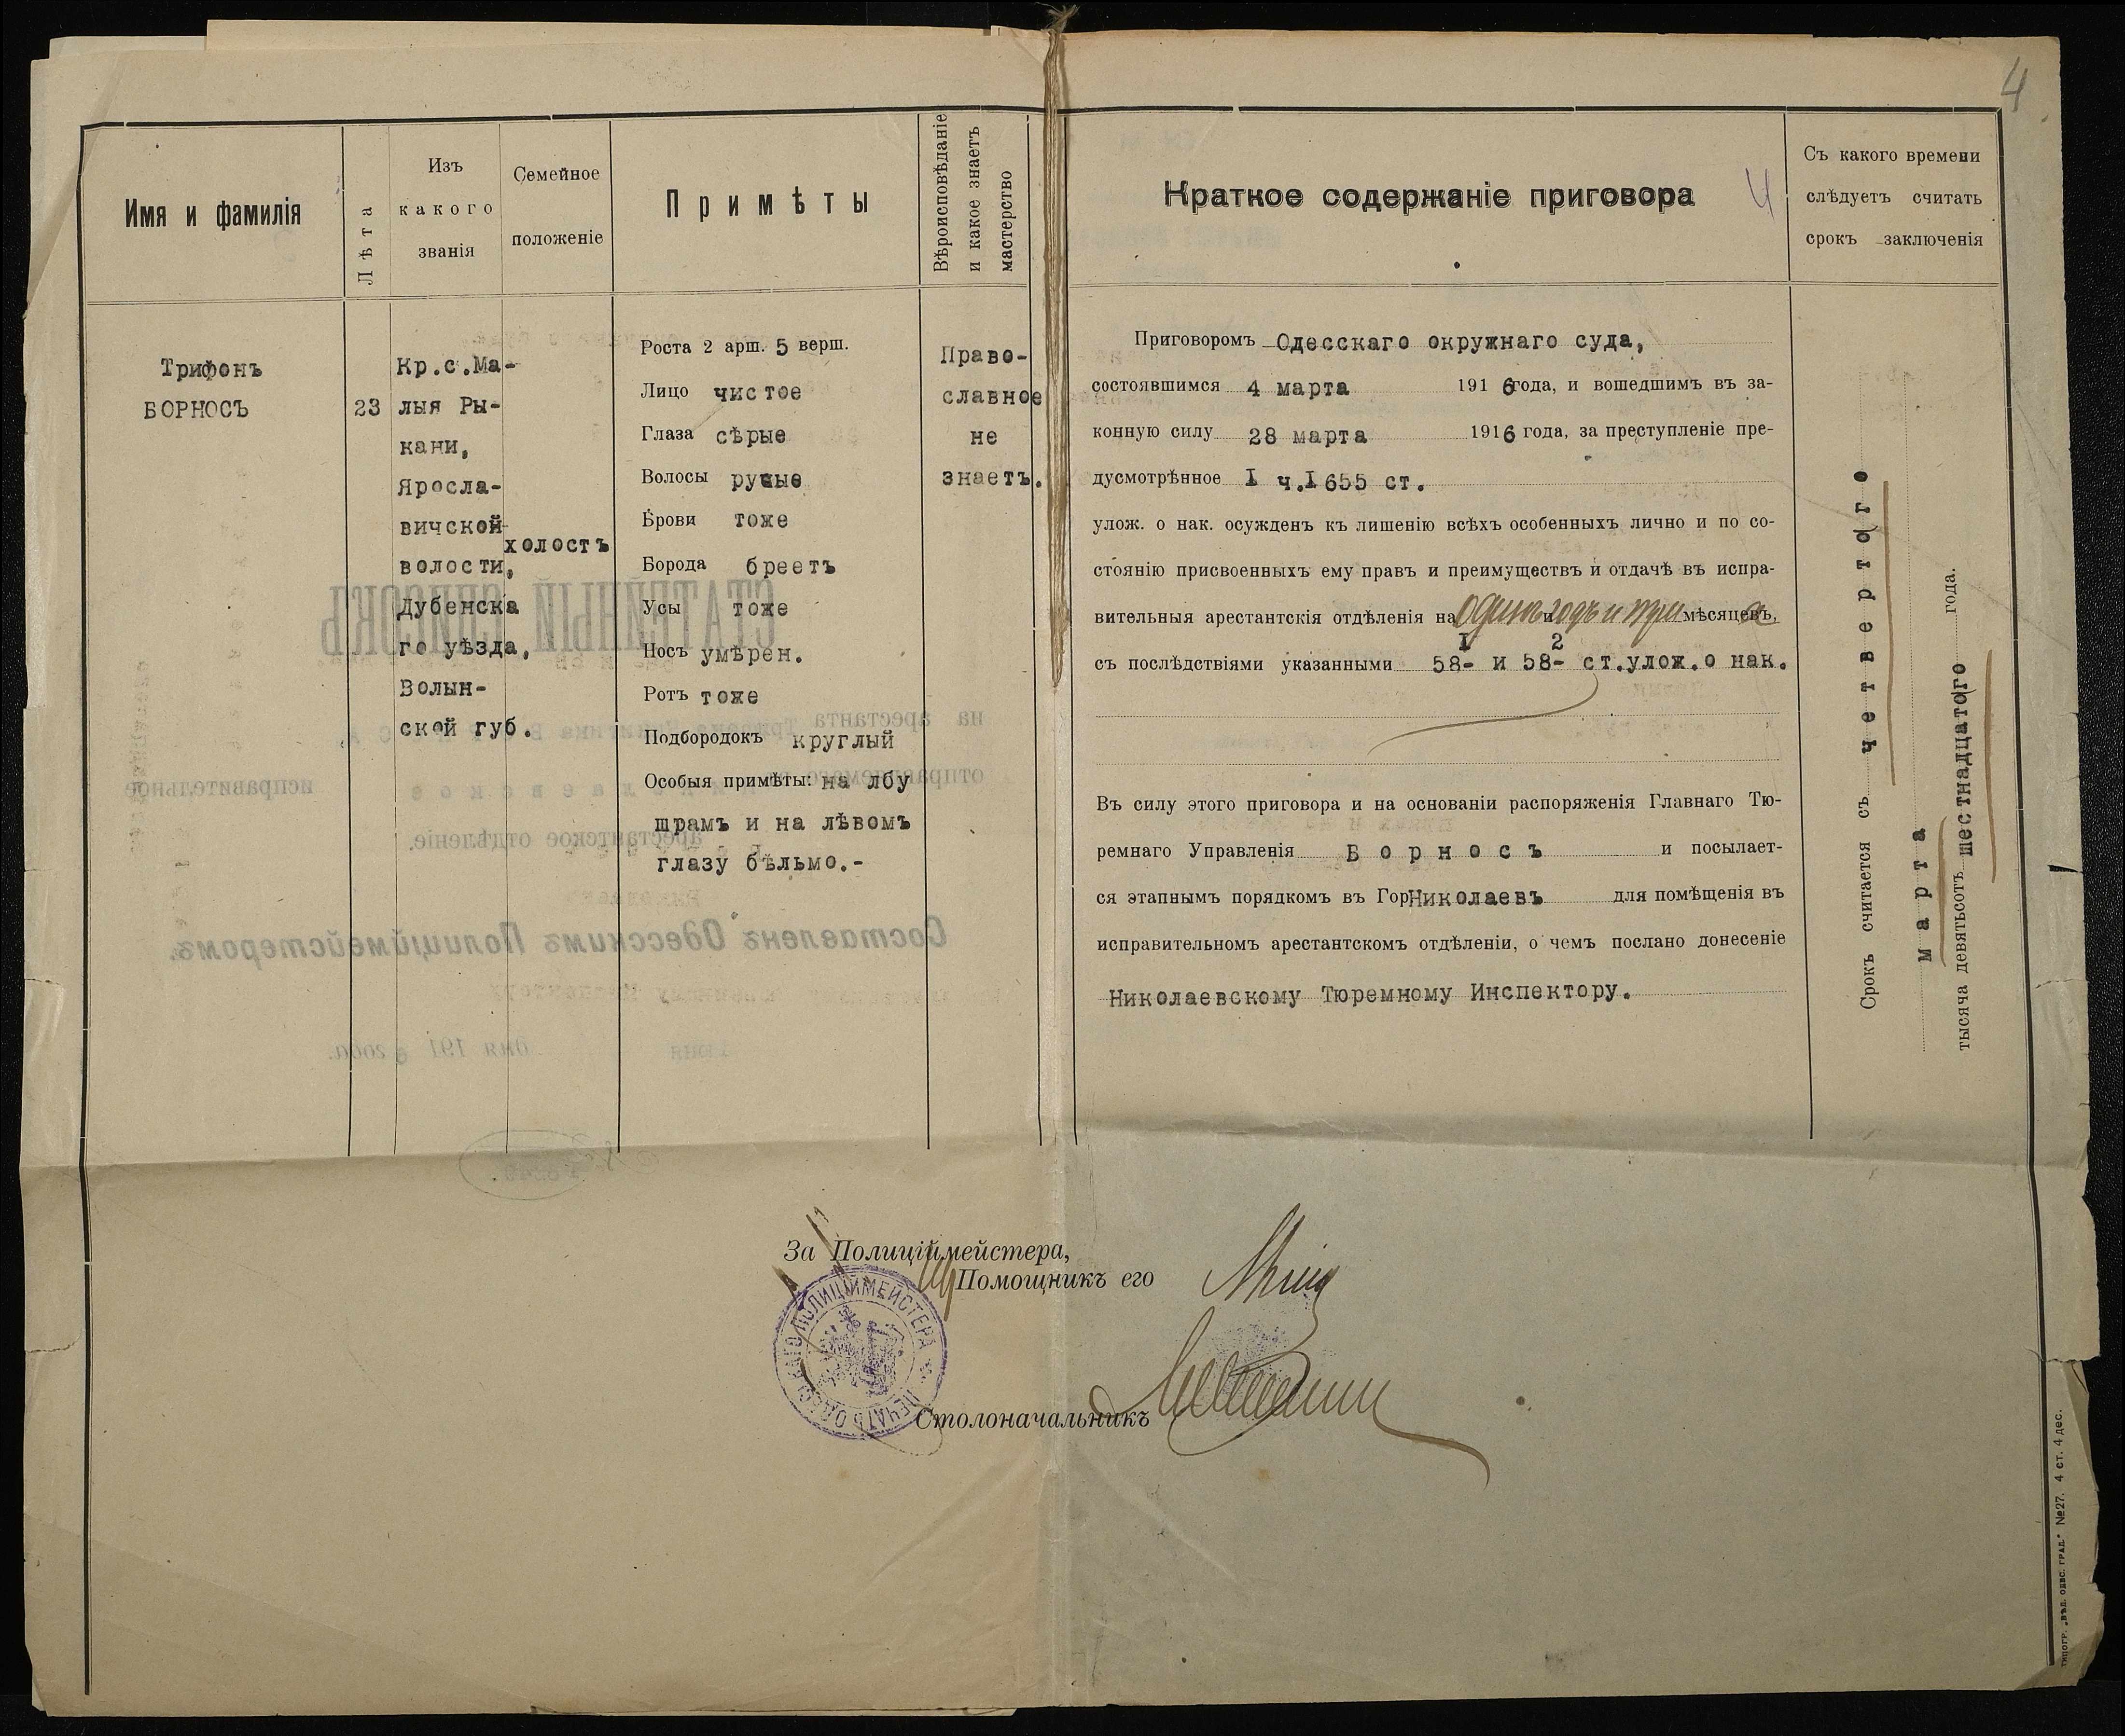 4
Имя и фамилія
Лѣта
Изъ
какого
званія
Семейное
положеніе
Примѣты
Вѣроисповѣданіе
и какое знаетъ
мастерство
Краткое содержаніе приговора
4
Съ какого времени
слѣдуетъ считать
срокъ заключенія
Трифонъ
БОРНОСЪ
23
Кр.с.Ма-
лыя Ры-
кани,
Яросла-
вичской
волости,
Дубенска
го уѣзда,
Волын-
ской губ.
холостъ
Роста 2 арш. 5 верш.
Лицо чистое
Глаза сѣрые
Волосы русые
Брови тоже
Борода бреетъ
Усы тоже
Носъ умѣрен.
Ротъ тоже
Подбородокъ круглый
Особыя примѣты: на лбу
шрамъ и на лѣвомъ
глазу бѣльмо.-
Право-
славное
не
знаетъ.
Приговоромъ Одесскаго окружнаго суда,
состоявшимся 4 марта 1916 года, и вошедшимъ въ за-
конную силу 28 марта 1916 года, за преступленіе пре-
дусмотрѣнное I ч.I655 ст.
улож. о нак. осужденъ къ лишенію всѣхъ особенныхъ лично и по со-
стоянію присвоенныхъ ему правъ и преимуществъ и отдачѣ въ испра-
вительныя арестантскія отдѣленія на одинъ годъ и три мѣсяца,
I 2
съ послѣдствіями указанными 58- и 58- ст.улож.о нак.
Въ силу этого приговора и на основаніи распоряженія Главнаго Тю-
ремнаго Управленія Борносъ и посылает-
ся этапнымъ порядкомъ въ Гор Николаевъ для помѣщенія въ
исправительномъ арестантскомъ отдѣленіи, о чемъ послано донесеніе
Николаевскому Тюремному Инспектору.
Срокъ считается съ четвертого
марта
тысяча девятьсотъ шестнадцатого года.
За Полиціймейстера,
Помощникъ его
ПЕЧАТЬ ОДЕССКАГО ПОЛИЦІЙМЕЙСТЕРА
Столоначальникъ
типогр. „вѣд. одес. град.“ №27. 4 ст. 4 дес.